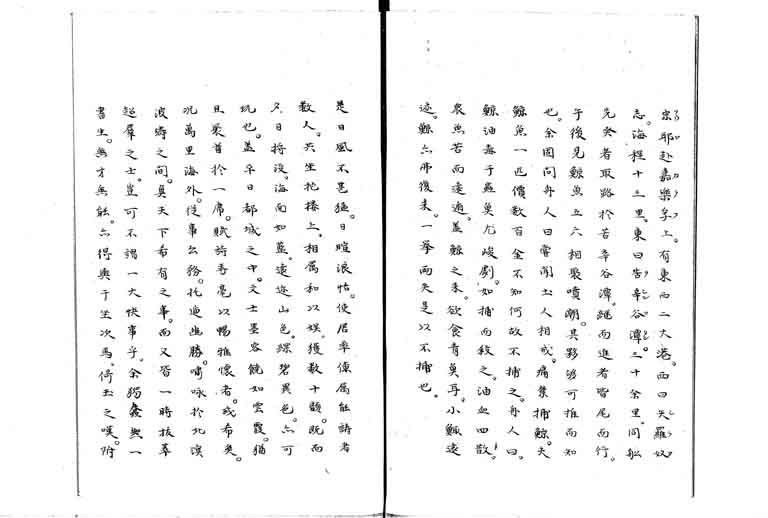 宗耶赴嘉樂孚上。有東西二大港。西曰矢羅奴
志。海程十三里。東曰苦辛谷潭。三十余里。同船
先發者取路於苦辛谷潭。繼而進者皆尾而行。
于後見鯨魚五六相聚噴潮。其夥够可推而知
也。余因問舟人曰嘗聞土人相戒。痛禁捕鯨。夫
鯨魚一匹價数百金不知何故不捕之。舟人曰。
鯨油毒于魚奠尤峻劇。如捕而殺之。油血四散。
衆魚苦而遠遁。蓋鯨之来。欲食青魚耳。小鯨遠
迯。鯨亦弗復来。一挙両失是以不捕也。
是日風不甚猛。日暄浪恬。使君率僚属能詩者
数人。共坐柁楼上。相属和以娯。獲数十韻。既而
夕日将没。海面如藍。遠近山色。縹碧異色。亦可
玩也。蓋平日都城之中。文士墨客饒如雲霞。猶
且聚首於一席。賦詩弄毫以暢雅懐者。或希矣。
况萬里海外。従事公務。托迹幽勝。嘯咏於北溟
波濤之間。真天下希有之事。而又皆一時抜萃
超羣之士。豈可不謂一大快事乎。余猖 無一
書生。無才無能。亦得與于坐次焉。倚玉之嘆。附